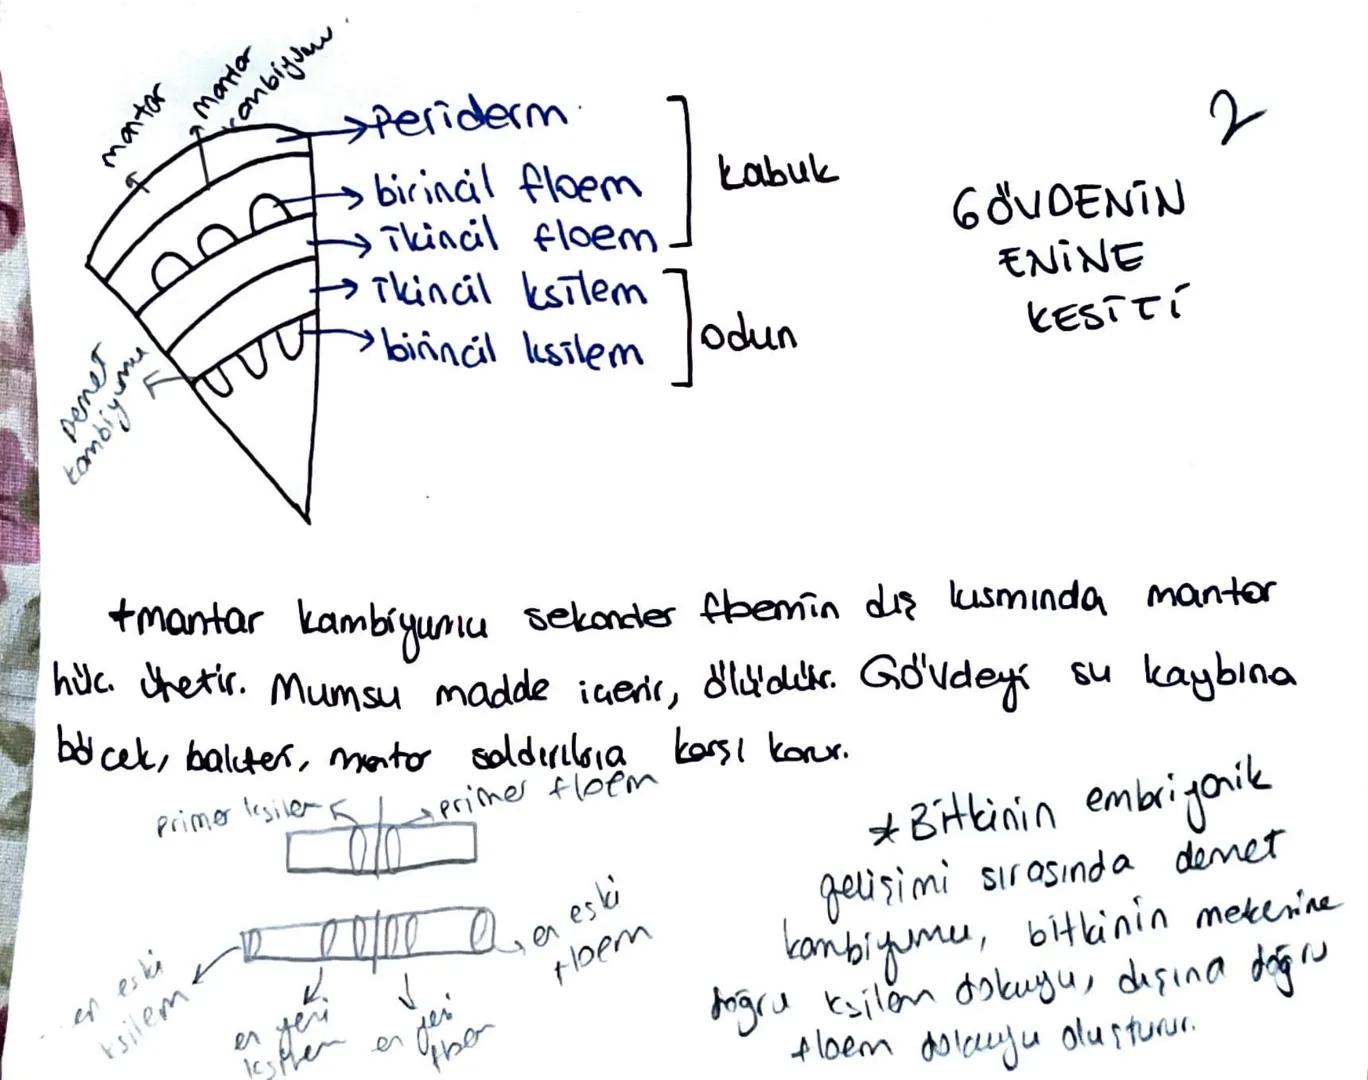 mantar
mantar
kambiyumu
2
Periderm
birincil floem
ikincil floem
kabuk
ikincil ksilem
birincil ksilem
odun
GÖVDENİN
ENİNE
KESİTİ
Demet
kambiyumu
+mantar kambiyumu sekonder floemin dış kısmında mantar
hüc. üretir. Mumsu madde içerir, ölüdür. Gövdeyi su kaybına
böcek, bakteri, mantar saldırılarına karşı korur.
primer ksilem
primer floem
en eski
floem
en eski
ksilem
en yeni
ksilem
en yeni
floem
*Bitkinin embriyonik
gelişimi sırasında demet
kambiyumu, bitkinin merkezine
doğru ksilem dokuyu, dışına doğru
floem dokuyu oluşturur.